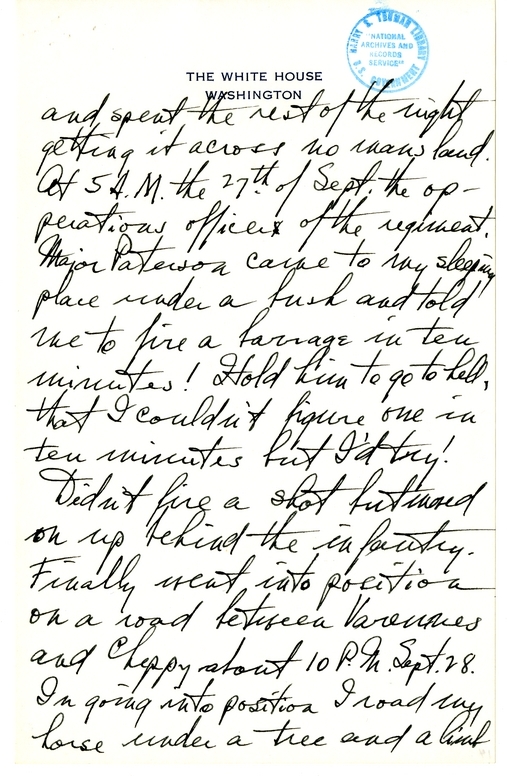 HARRY S. TRUMAN LIBRARY
"NATIONAL
ARCHIVES AND
RECORDS
SERVICE"
U.S. GOVERNMENT
THE WHITE HOUSE
WASHINGTON
and spent the rest of the night
getting it across no mans land.
At 5 A.M. the 27th of Sept. the op-
perations officer of the regiment.
Major Paterson came to my sleeping
place under a bush and told
me to fire a barrage in ten
minutes! I told him to go to hell,
that I couldn't figure one in
ten minutes but I'd try!
Didn't fire a shot but moved
on up behind the infantry.
Finally went into position
on a road between Varennes
and Cheppy about 10 P.M. Sept. 28.
In going into position I road my
horse under a tree and a limb